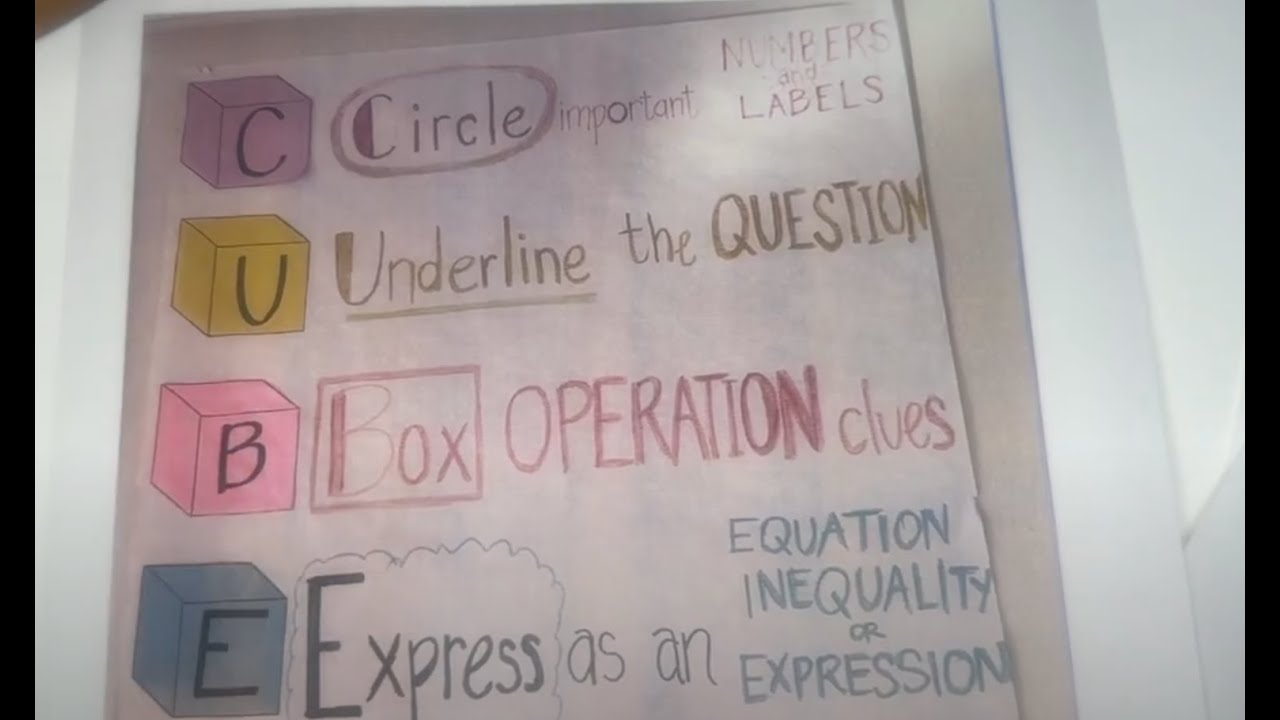 C Circle important NUMBERS and LABELS
U Underline the QUESTION
B Box OPERATION clues
E Express as an EQUATION INEQUALITY OR EXPRESSION